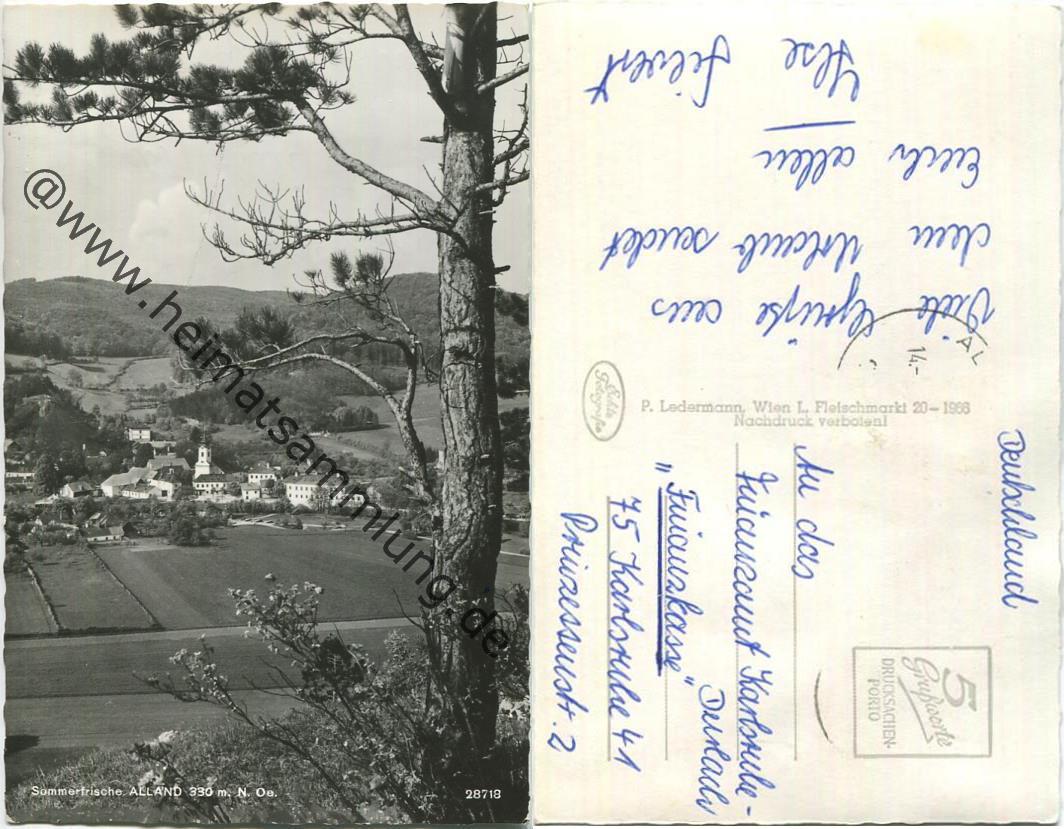 Sommerfrische ALLAND 330 m. N. Oe.
28718
@www.heimatsammlung.de
Viele Grüße aus
dem Urlaub sendet
Euch allen
Ilse
AL
14.-
Echte
Fotografie
P. Ledermann, Wien I., Fleischmarkt 20 – 1966
Nachdruck verboten!
Deutschland
5
Grußworte
DRUCKSACHEN-
PORTO
An das
Finanzamt Karlsruhe-
Durlach
"Finanzkasse"
75 Karlsruhe 41
Prinzessenstr. 2